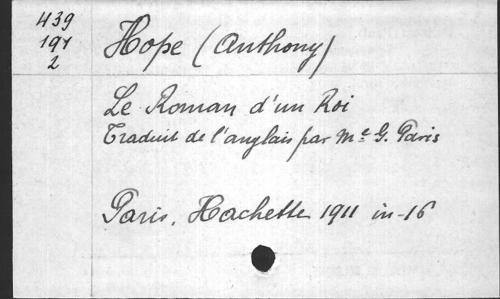 439
191
2
Hope (Anthony)
Le Roman d'un Roi
Traduit de l'anglais par Me G. Paris
Paris, Hachette 1911 in-16